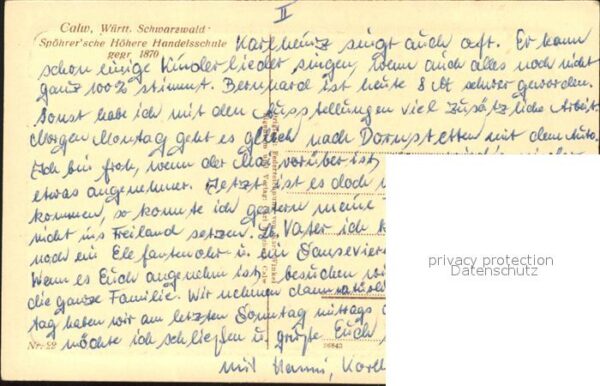 II
Calw, Württ. Schwarzwald
Spöhrer'sche Höhere Handelsschule
gegr. 1870
Karlheinz singt auch oft. Er kann
schon einige Kinderlieder singen, wenn auch alles noch nicht
ganz 100% stimmt. Bernhard ist heute 8 M schwer geworden.
Sonst habe ich mit den Ausstellungen viel zusätzliche Arbeit.
Morgen Montag geht es gleich nach Dornstetten mit dem Auto.
Ich bin froh, wenn der Mai vorüber ist,
etwas angenehmer. Jetzt ist es doch
kommen, so konnte ich gestern meine
nicht ins Freiland setzen. Lb. Vater ich
noch ein Elefantenohr u. ein
Wenn es Euch angenehm ist, besuchen
die ganze Familie. Wir nehmen dann
tag haben wir am letzten Sonntag mittags
möchte ich schließen u. grüße Euch,
mit Hanni,
Nr. 29
26843
privacy protection
Datenschutz